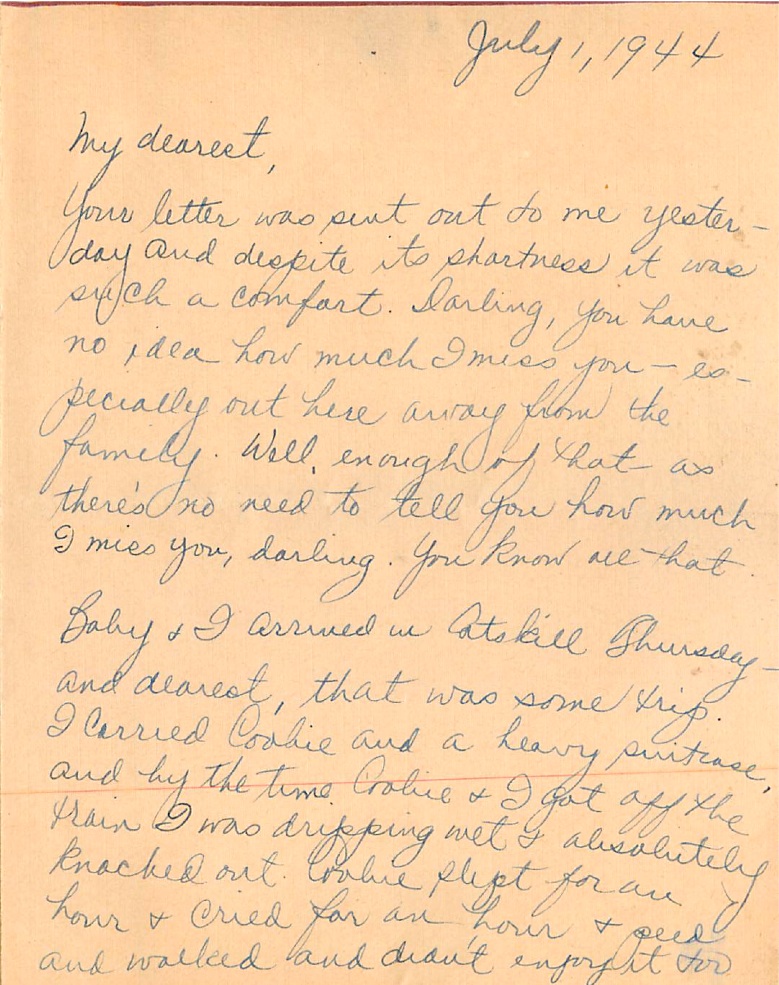 July 1, 1944
My dearest,
Your letter was sent out to me yester-
day and despite its shortness it was
such a comfort. Darling, you have
no idea how much I miss you - es-
pecially out here away from the
family. Well, enough of that - as
there's no need to tell you how much
I miss you, darling. You know all that.
Baby & I arrived in Catskill Thursday -
and dearest, that was some trip.
I carried Cookie and a heavy suitcase,
and by the time Cookie & I got off the
train I was dripping wet & absolutely
knocked out. Cookie slept for an
hour & cried for an hour & peed
and walked and didn't enjoy it too